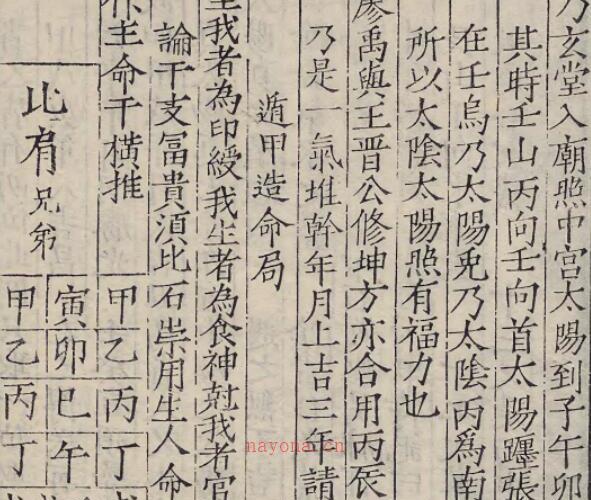 乃玄堂入廟照中宮太陽到子午卯
其時壬山丙向壬向首太陽躔張
在壬烏乃太陽兎乃太陰丙爲南
所以太陰太陽照有福力也
廖禹與王晋公修坤方亦合用丙辰
乃是一氣堆幹年月上吉三年請
遁甲造命局
生我者為印綬我生者為食神尅我者官
論干支冨貴須比石崇用生人命
主命干橫推
甲乙丙丁
寅卯巳午
比肩兄弟
甲乙丙丁
nayona.cn